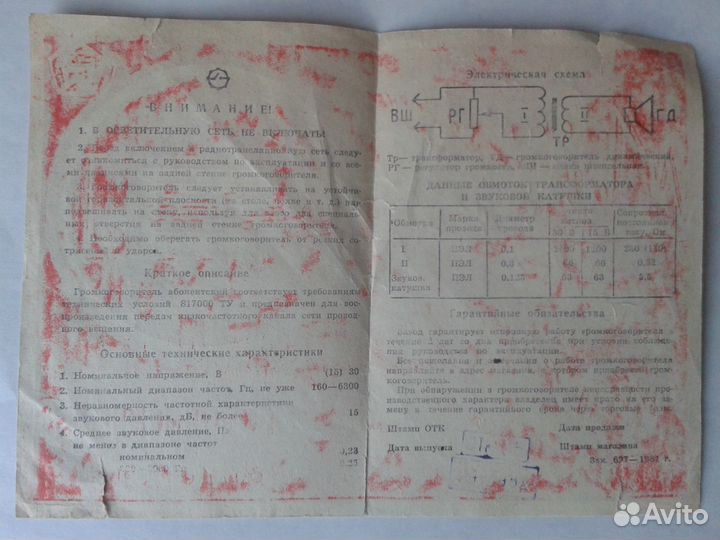 ВНИМАНИЕ!
1. В ОСВЕТИТЕЛЬНУЮ СЕТЬ НЕ ВКЛЮЧАТЬ!
2. Перед включением в радиотрансляционную сеть следует ознакомиться с руководством по эксплуатации и со всеми надписями на задней стенке громкоговорителя.
3. Громкоговоритель следует устанавливать на устойчивой горизонтальной плоскости (на столе, полке и т. д.) или подвешивать на стену, используя для этого два специальных отверстия на задней стенке громкоговорителя.
Необходимо оберегать громкоговоритель от резких сотрясений и ударов.
Краткое описание
Громкоговоритель абонентский соответствует требованиям
технических условий 817000 ТУ и предназначен для воспроизведения передач низкочастотного канала сети проводного вещания.
Основные технические характеристики
1. Номинальное напряжение, В (15) 30
2. Номинальный диапазон частот, Гц, не уже 160—6300
3. Неравномерность частотной характеристики
звукового давления, дБ, не более 15
4. Среднее звуковое давление, Па
не менее в диапазоне частот
номинальном 0,23
0,25
Электрическая схема
ВШ РГ I II ТР ГД
Тр — трансформатор, ГД — громкоговоритель динамический,
РГ — регулятор громкости, ВШ — вилка штепсельная.
ДАННЫЕ ОБМОТОК ТРАНСФОРМАТОРА
И ЗВУКОВОЙ КАТУШКИ
Обмотка Марка провода Диаметр провода 30 В 15 В
I ПЭЛ 0,1
II ПЭЛ 66 66
Звуков. катушка ПЭЛ 0,125 63 63
Гарантийные обязательства
Завод гарантирует исправную работу громкоговорителя в
течение 2 лет со дня приобретения при условии соблюдения руководства по эксплуатации.
Все пожелания и замечания о работе громкоговорителя
направляйте в адрес магазина, в котором приобретен громкоговоритель.
При обнаружении в громкоговорителе неисправности производственного характера владелец имеет право на его замену в течение гарантийного срока через торговую сеть.
Штамп ОТК Дата продажи
Дата выпуска Штамп магазина
Зак. 697—1987 г.
Avito